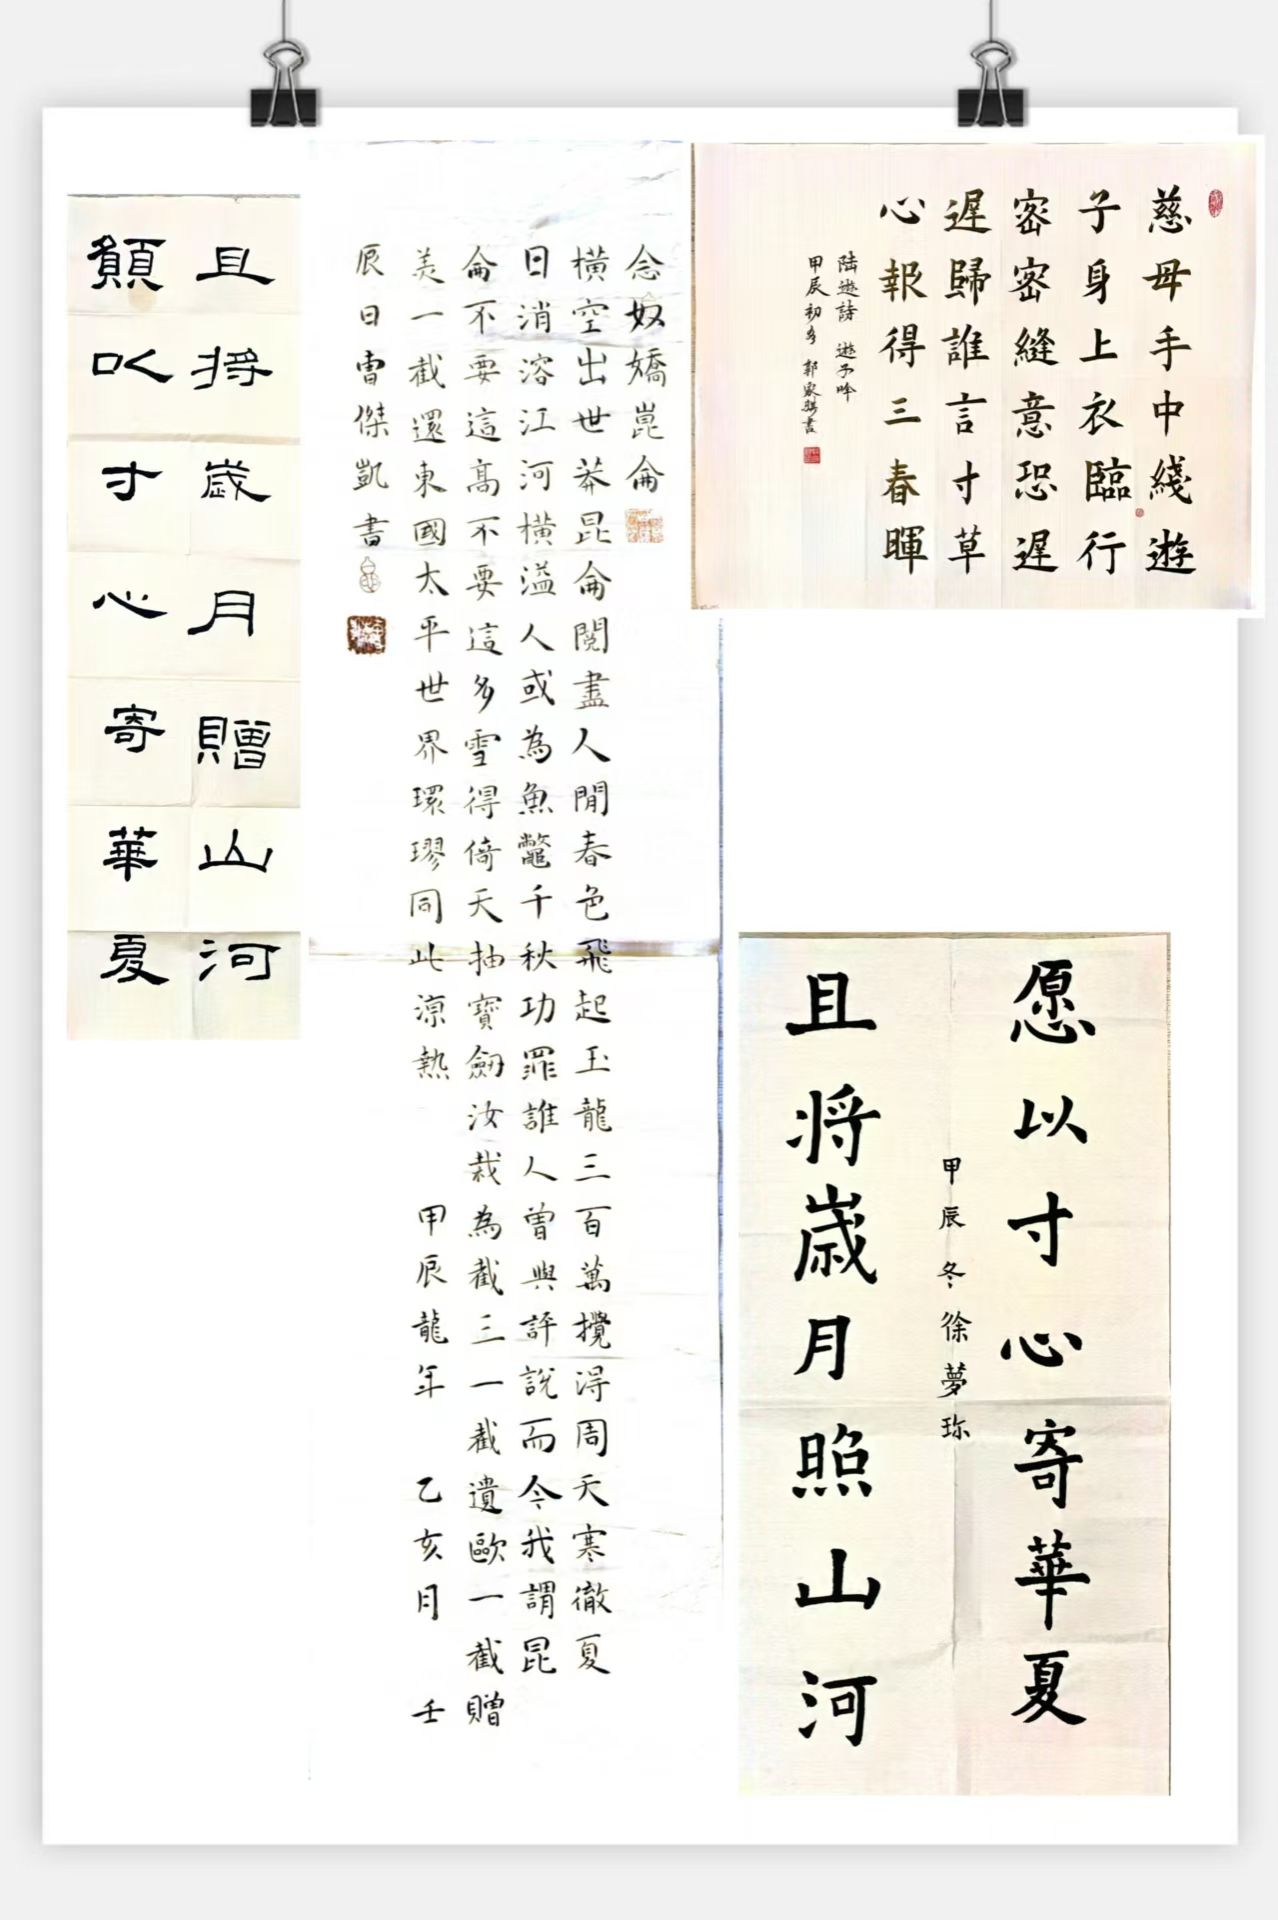 慈母手中綫遊
子身上衣臨行
密密縫意恐遲
遲歸誰言寸草
心報得三春暉
陆遊詩 遊子吟
甲辰初冬 郭家書
念奴嬌崑侖
橫空出世莽昆侖閱盡人閒春色飛起玉龍三百萬攪得周天寒徹夏
日消溶江河橫溢人或為魚鼈千秋功罪誰人曾與評說而今我謂昆
侖不要這高不要這多雪得倚天抽寶劒汝裁為截三一截遺歐一截贈
美一截還東國太平世界環璆同此涼熱 甲辰龍年 乙亥月 壬
辰日曹傑凱書
且将歲月贈山河
願以寸心寄華夏
愿以寸心寄華夏
甲辰 冬徐夢珎
且将歲月照山河